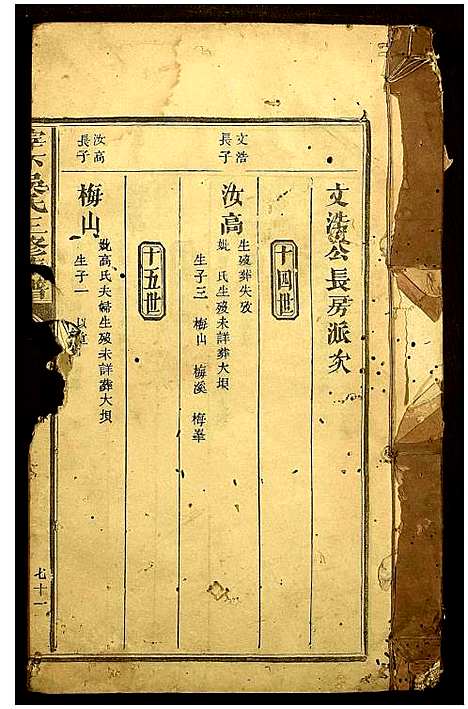 文浩公長房派次
十四世
文浩長子
汝高
生殁葬失攷
妣 氏生殁未詳葬大垻
生子三 梅山 梅溪 梅峯
十五世
汝高長子
梅山
妣高氏夫婦生殁未詳葬大垻
生子一
氏三修
譜
七十一